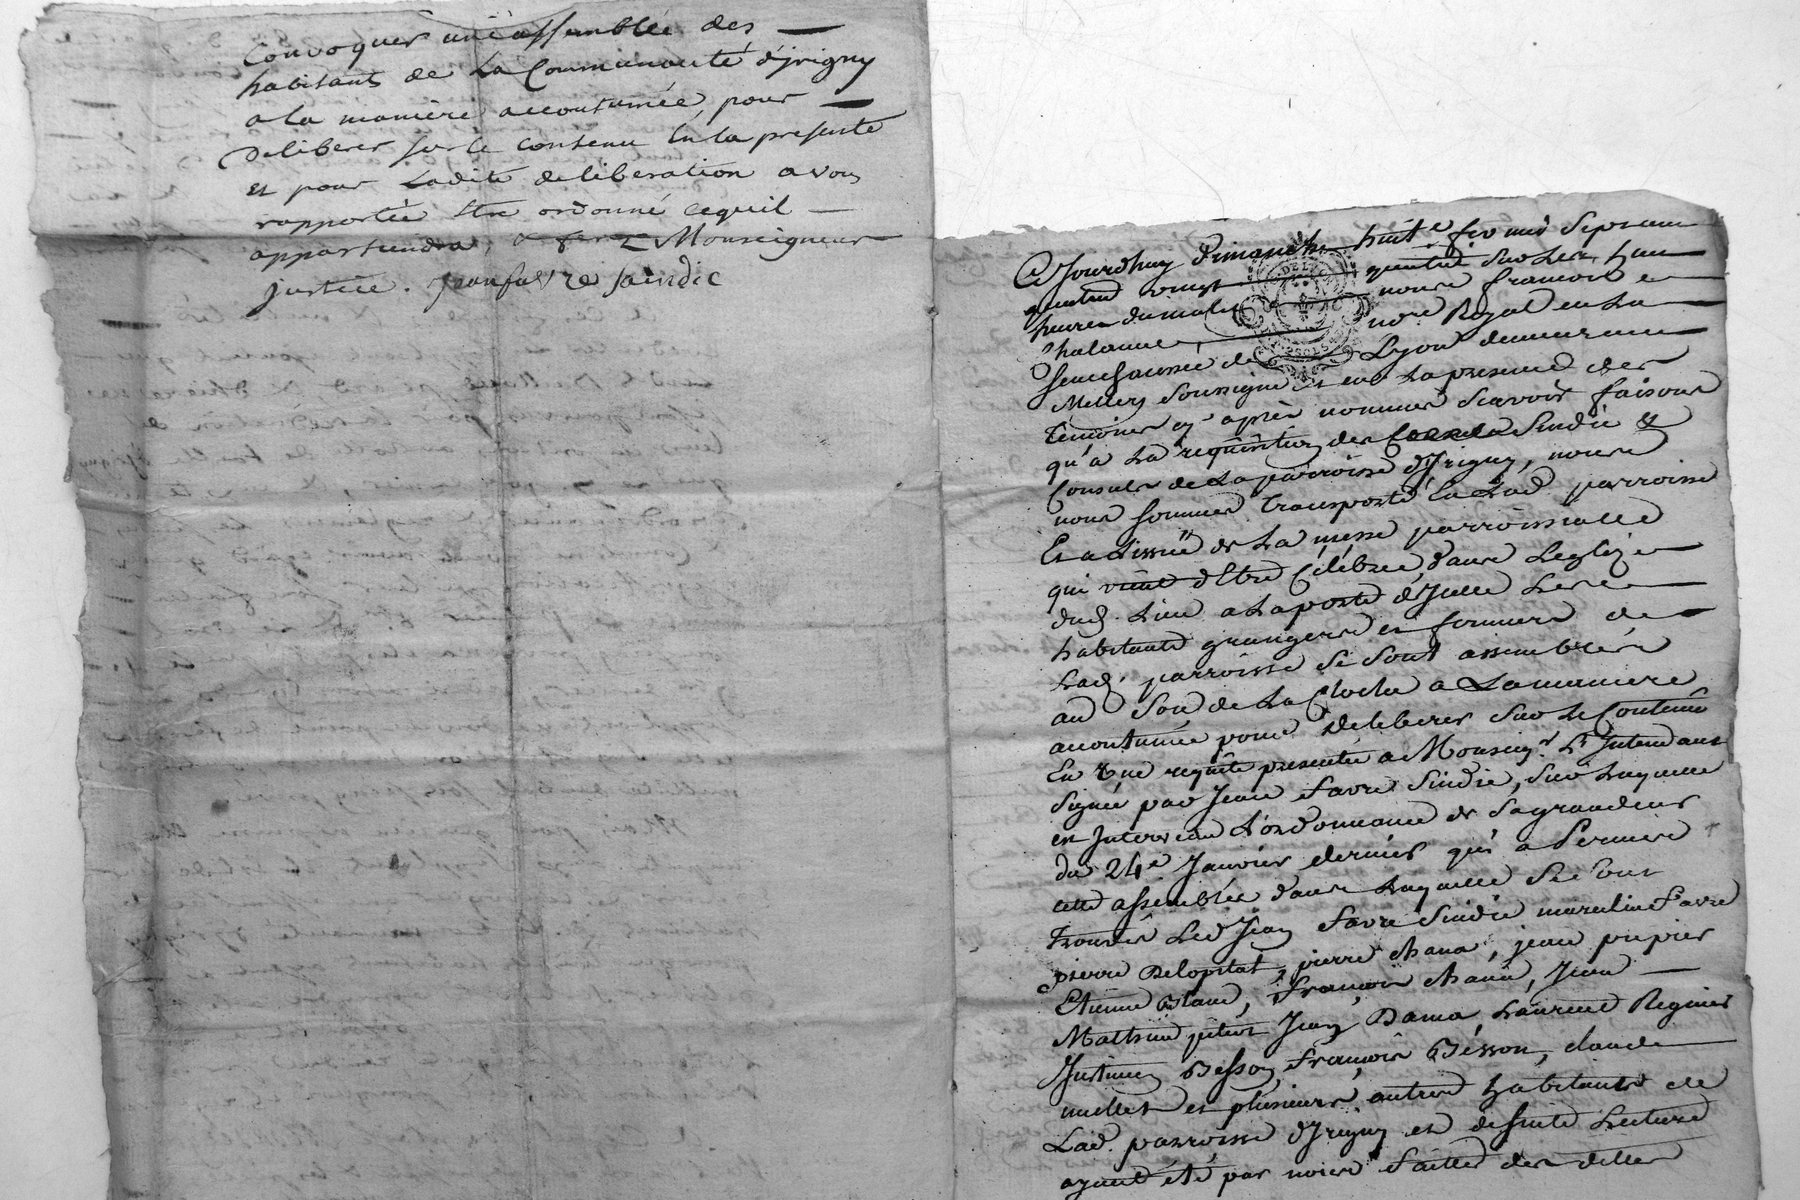 Convoquer une assemblée des
habitants de La Communauté d'jrigny
a la maniere accoutumée, pour
Deliberer sur le contenu En la presente
Et pour Ladite deliberation a vous
rapportée Etre ordonné cequil
appartiendra, Monseigneur
justice. Jean favre saindic
Cejourdhuy Dimanche huit.e fevrier Sept cent
quatre vingt quatre Sur Les
heures du matin nous francois
Chalanne, no.re Royal en La
Senechaussée de Lyon demeurant
Millery Soussigné et en La presence des
temoins cy apres nommés Scavoir faisons
qu'a La requisition des Sindic &
Consuls de La parroisse d'Jrigny, nous
nous Sommes transporté En Lad. parroisse
Et a Lissuë de La messe parroissialle
qui vient d'Etre Célébrée dans Leglize
dud. Lieu a La porte d'Jcelle Les
habitants grangers et fermiers de
Lad. parroisse Se Sont assemblés
au Son de La Cloche a La maniere
accoutumée pour deliberer Sur Le Contenu
En Une requête presentée a Monseig.r L'Intendant
Signée par Jean favre Sindic, Sur Laquelle
est Intervenu L'ordonnance de Sa grandeur
du 24.e Janvier dernier qui a Permis
cette assemblée dans Laquelle Se Sont
trouvés Led. Jean favre Sindic marcelin favre
pierre Delopital, pierre chana, jean pupier
Etienne Blanc, François chana, Jean
Mathieu Jean Dama, Laurent Reginer
Besson, François Besson, claude
mullet et plusieurs autres habitants de
Lad. parroisse d'Jrigny et de suite Lecture
ayant été par nous faitte des dittes